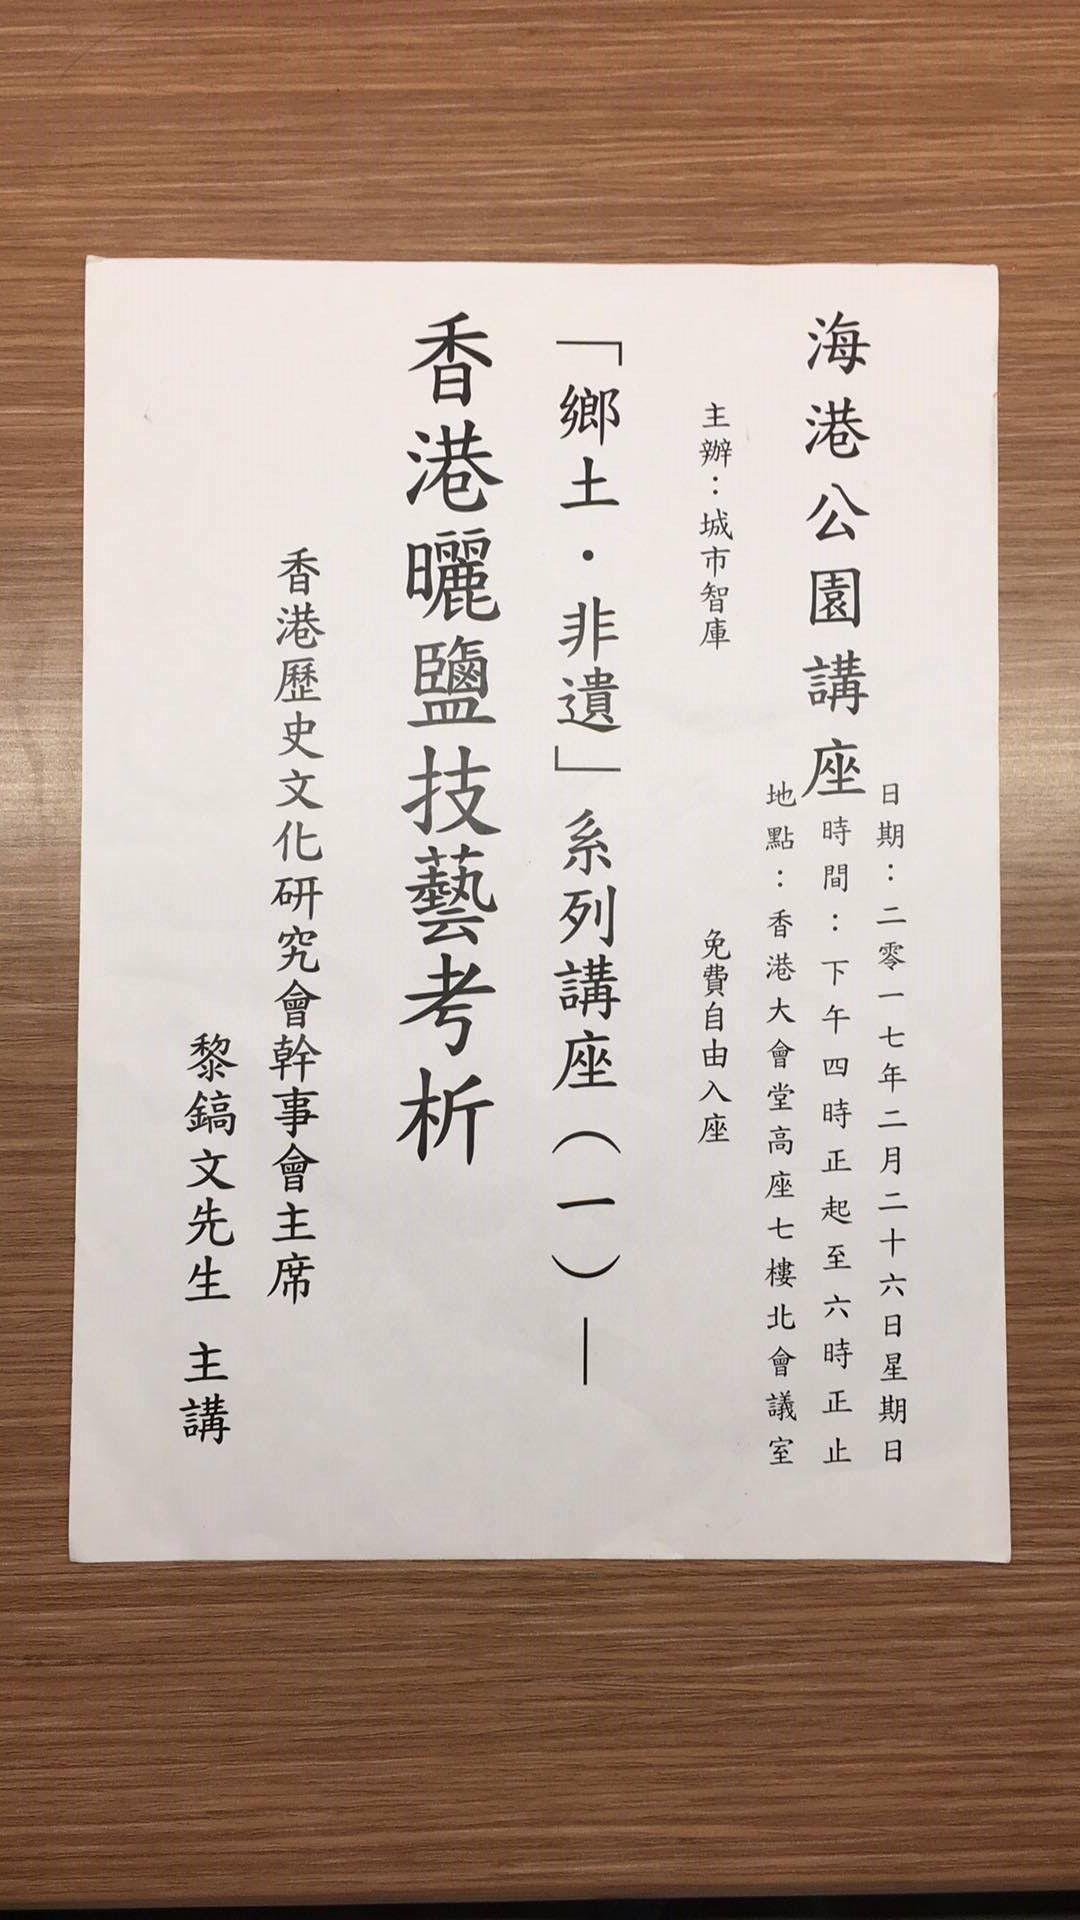 海港公園講座
日期：二零一七年二月二十六日星期日
時間：下午四時正起至六時正止
地點：香港大會堂高座七樓北會議室
主辦：城市智庫
免費自由入座
「鄉土・非遺」系列講座（一）—
香港曬鹽技藝考析
香港歷史文化研究會幹事會主席
黎鎬文先生 主講